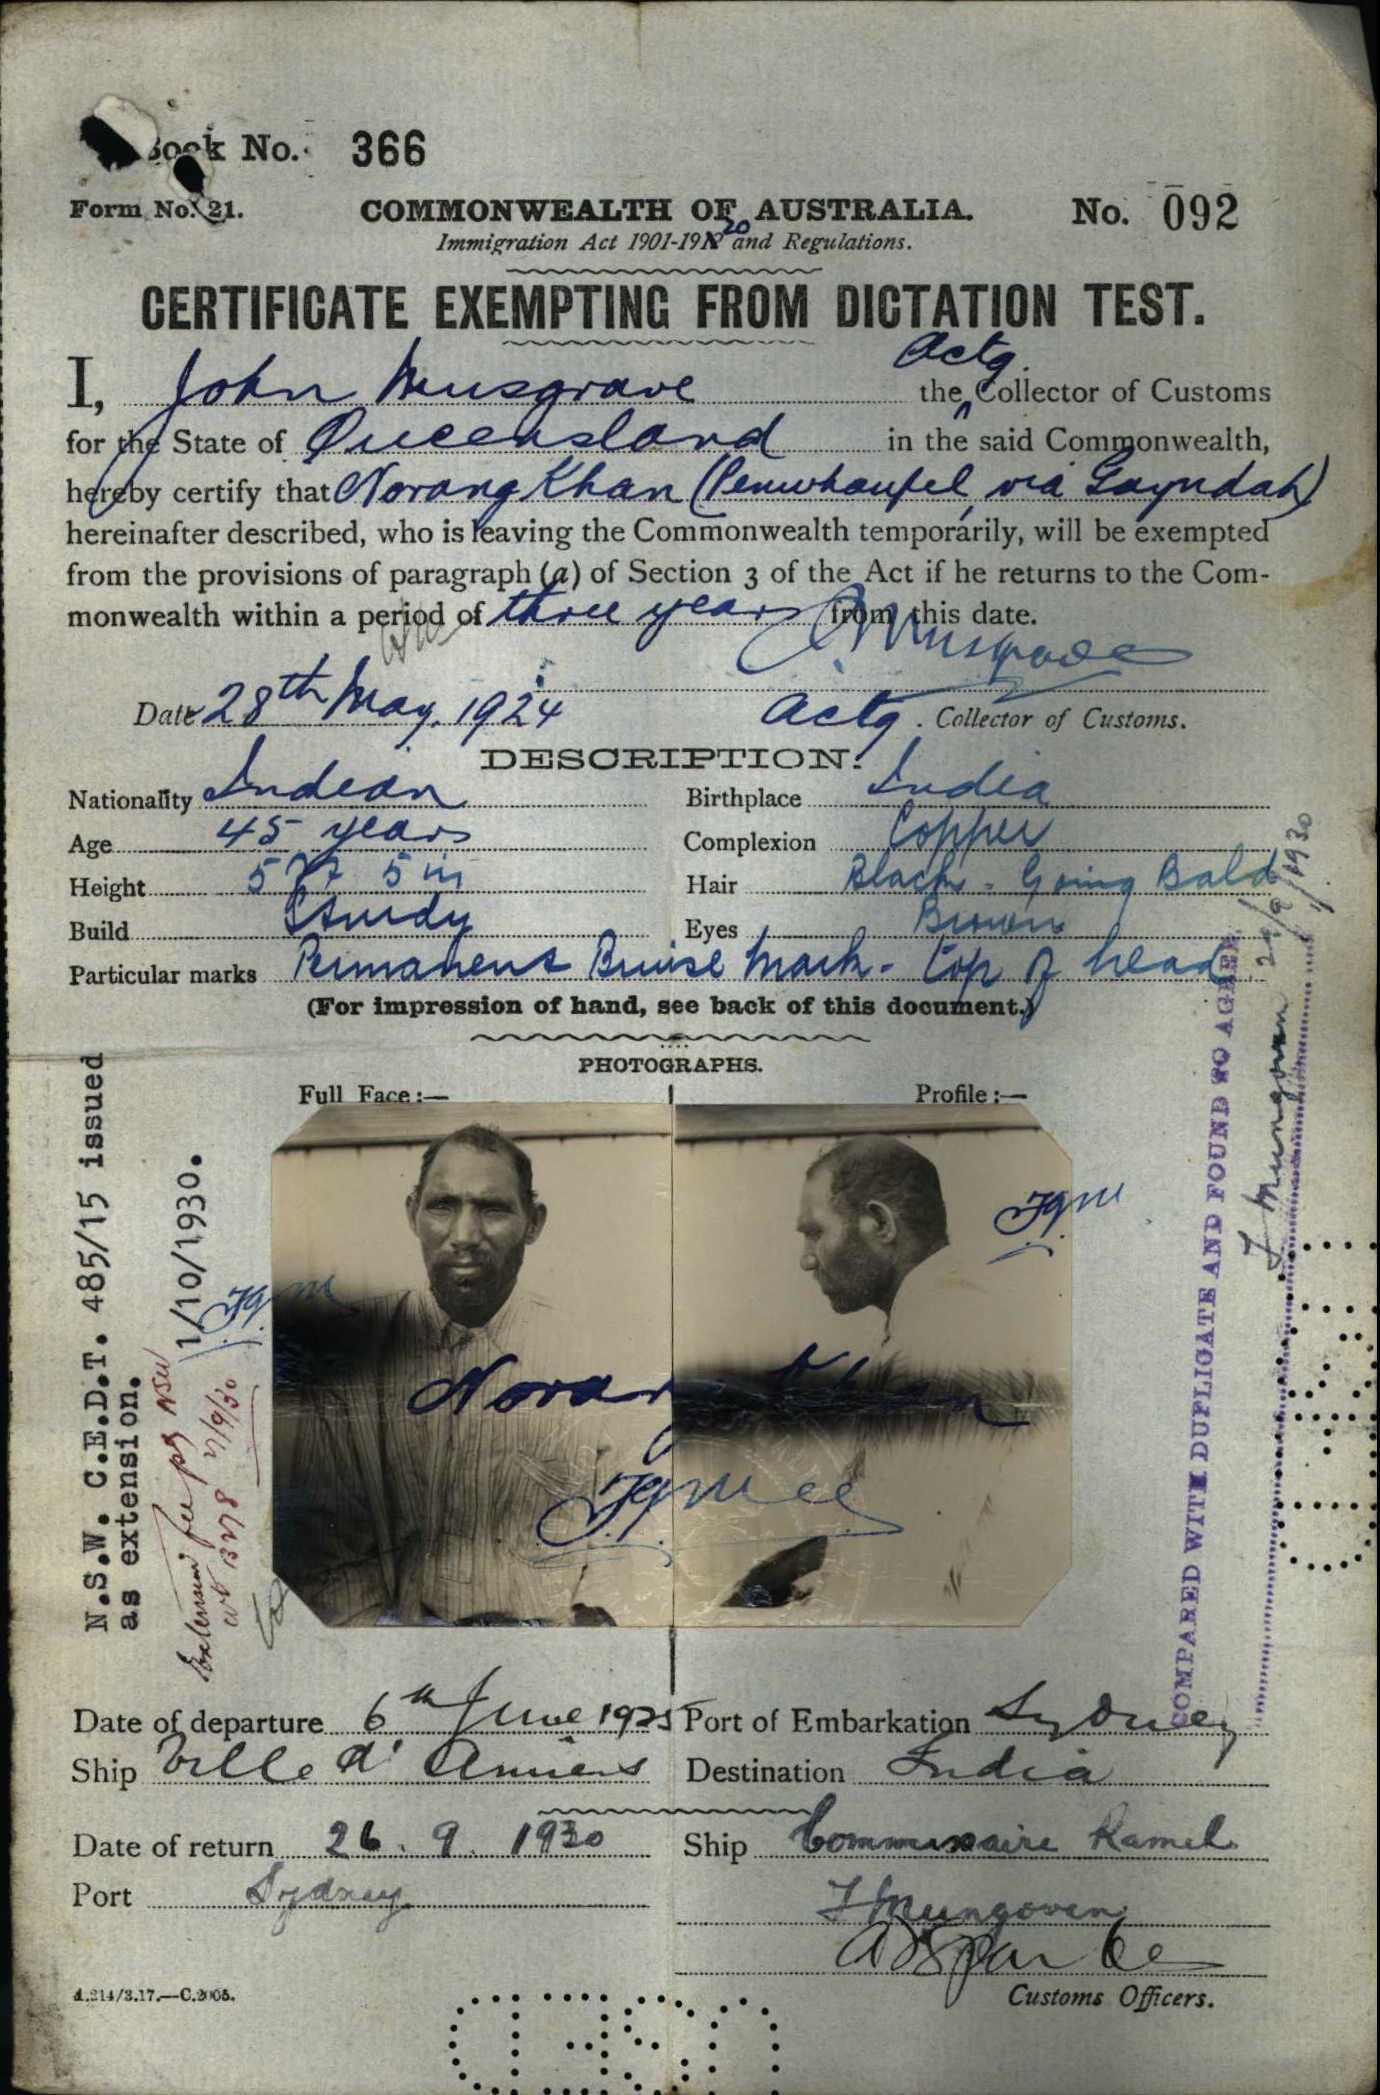 Book No. 366
Form No. 21. COMMONWEALTH OF AUSTRALIA. No. 092
Immigration Act 1901-1912 20 and Regulations.
CERTIFICATE EXEMPTING FROM DICTATION TEST.
Actg.
I, John Musgrave the Collector of Customs
for the State of Queensland in the said Commonwealth,
hereby certify that Norang Khan ( via Gayndah)
hereinafter described, who is leaving the Commonwealth temporarily, will be exempted
from the provisions of paragraph (a) of Section 3 of the Act if he returns to the Com-
monwealth within a period of three years from this date.
J Musgrave
Date 28th May, 1924 Actg. Collector of Customs.
DESCRIPTION.
Nationality Indian Birthplace India
Age 45 years Complexion Copper
Height 5 ft 5 in Hair Black - Going Bald
Build Sturdy Eyes Brown
Particular marks Permanent Bruise Mark - top of head
(For impression of hand, see back of this document.)
PHOTOGRAPHS.
Full Face:— Profile:—
N.S.W. C.E.D.T. 485/15 issued
as extension. 1/10/1930.
Extension fee pd NSW
COMPARED WITH DUPLICATE AND FOUND TO AGREE.
F Mungoven 29/9/1930
Norang Khan
Date of departure 6th June 1925 Port of Embarkation Sydney
Ship Ville d' Amiens Destination India
Date of return 26. 9. 1930 Ship Commissaire Ramel
Port Sydney
F Mungoven
Customs Officers.
A.214/3.17.—C.2005.